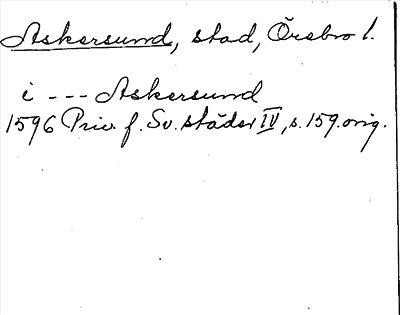 Askersund, stad, Örebro l.
i --- Askersund
1596 Priv. f. Sv. städer IV, s. 159. orig.